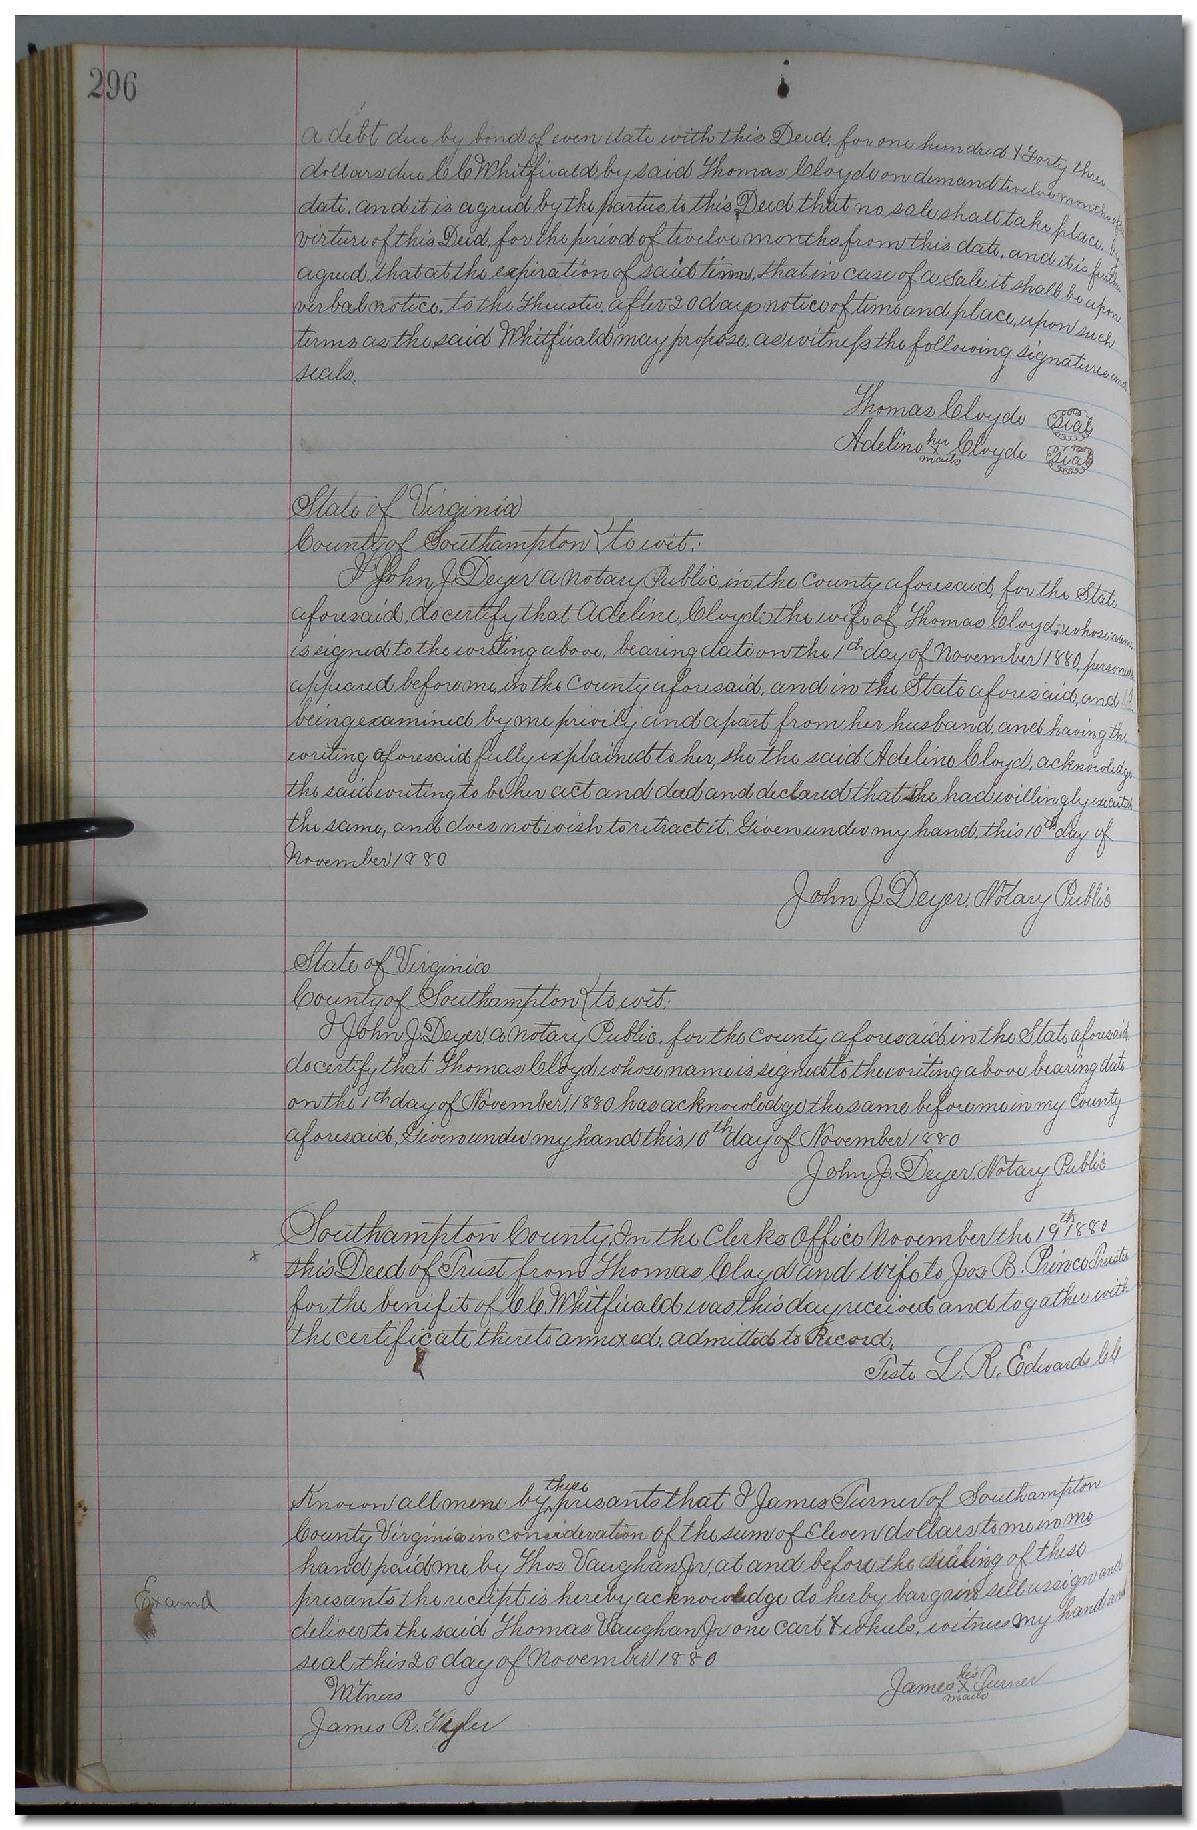 296
a debt due by bond of even date with this Deed, for one hundred & Forty three
dollars due C C Whitfield, by said Thomas Cloyde on demand twelve months after
date, and it is agreed by the parties to this Deed that no sale shall take place, by
virture of this Deed, for the period of twelve months from this date, and it is further
agreed, that at the expiration of said time, that in case of a sale it shall be upon
verbal notice, to the Thrustee, after 20 days notice of time and place, upon such
terms as the said Whitfield may propose, as witness the following signatures and
seals.
Thomas Cloyde Seal
Adeline her x mark Cloyde Seal
State of Virginia
County of Southampton } to wit:
I John J. Deyer a notary Public, in the County aforesaid, for the State
aforesaid, do certify that Adeline, Cloyd the wife of Thomas Cloyd, whose name
is signed to the writing above, bearing date on the 1th day of November 1880, personally
appeared before me, in the County aforesaid, and in the State aforesaid, and
being examined by me privily and apart from her husband, and having the
writing aforesaid fully explained to her, she the said Adeline Cloyd, acknowledge
the said writing to be her act and deed and declared that she had willingly executed
the same, and does not wish to retract it. Given under my hand, this 10th day of
November 1880
John J. Deyer, Notary Public
State of Virginia
County of Southampton } to wit:
I John J. Deyer a notary Public, for the County aforesaid in the State aforesaid,
do certify that Thomas Cloyd whose name is signed to the writing above bearing date
on the 1th day of November 1880 has acknowledge the same before me in my County
aforesaid, Given under my hand this 10th day of November 1880
John J. Deyer, Notary Public
Southampton County, In the Clerks Office November the 19th 1880
x this Deed of Trust from Thomas Cloyd and wife to Jos B. Prince Trustee
for the benifit of C C Whitfield was this day received and togather with
the certificate thereto annexed, admitted to Record.
Teste L. R. Edwards C C
Know all mene by these presants that I James Turner of Southampton
County Virginia in consideration of the sum of Eleven dollars to me in me
hand paid me by Thos Vaughan Jr, at and before the sealing of these
Examd presants the receipt is hereby acknowledge do herby bargain sell assign and
deliver to the said Thomas Vaughan Jr one cart & wheels, witness my hand and
seal this 20 day of November 1880
Witness James his x mark Turner
James R. Tyler